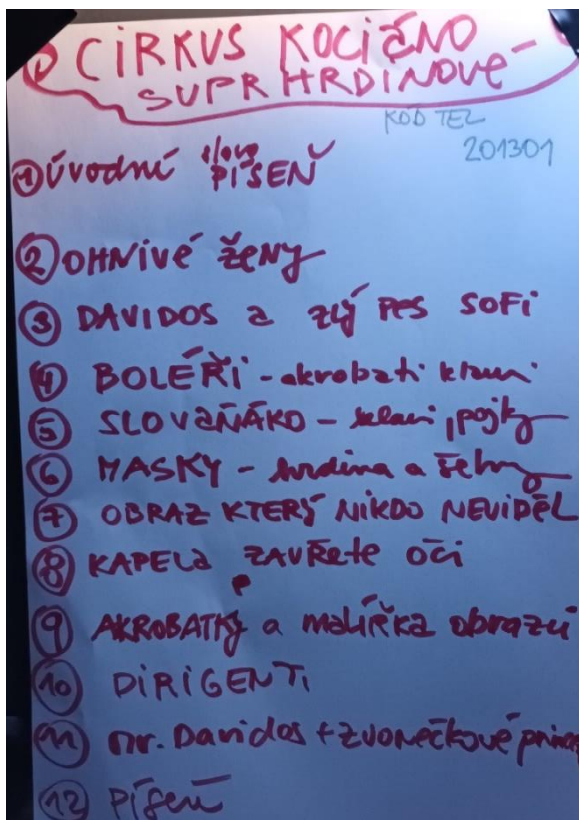 CIRKUS KOCIČNO
SUPR HRDINOVÉ
KÓD TEL
201301
1 Úvodní slovo PÍSEŇ
2 OHNIVÉ ŽENY
3 DAVIDOS a zlý PES SOFI
4 BOLÉŘI - akrobati klauni
5 SLOVAŇÁKO - klauni,
6 MASKY - hrdina a
7 OBRAZ KTERÝ NIKDO NEVIDĚL
8 KAPELA ZAVŘETE OČI
9 AKROBATKY a malířka obrazů
10 DIRIGENTI
11 mr. Davidos + zvonečkové
12 píseň